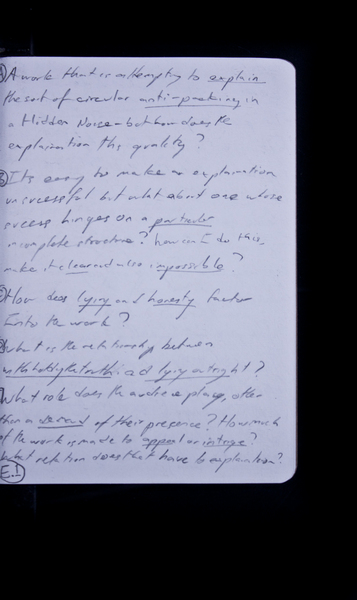 A work that is attempting to explain
the sort of circular anti-packing in
a Hidden Noise - but how does the
explanation this quality?
It's easy to make an explanation
unsuccessful but what about one whose
success hinges on a particular
incomplete structure? how can I do this,
make it clear and also impossible?
How does lying and honesty factor
into the work?
What is the relationship between
and lying outright?
What role does the audience play, other
than a demand of their presence? How much
of the work is made to appeal or intrigue?
What relation does that have to explanation?
E.1